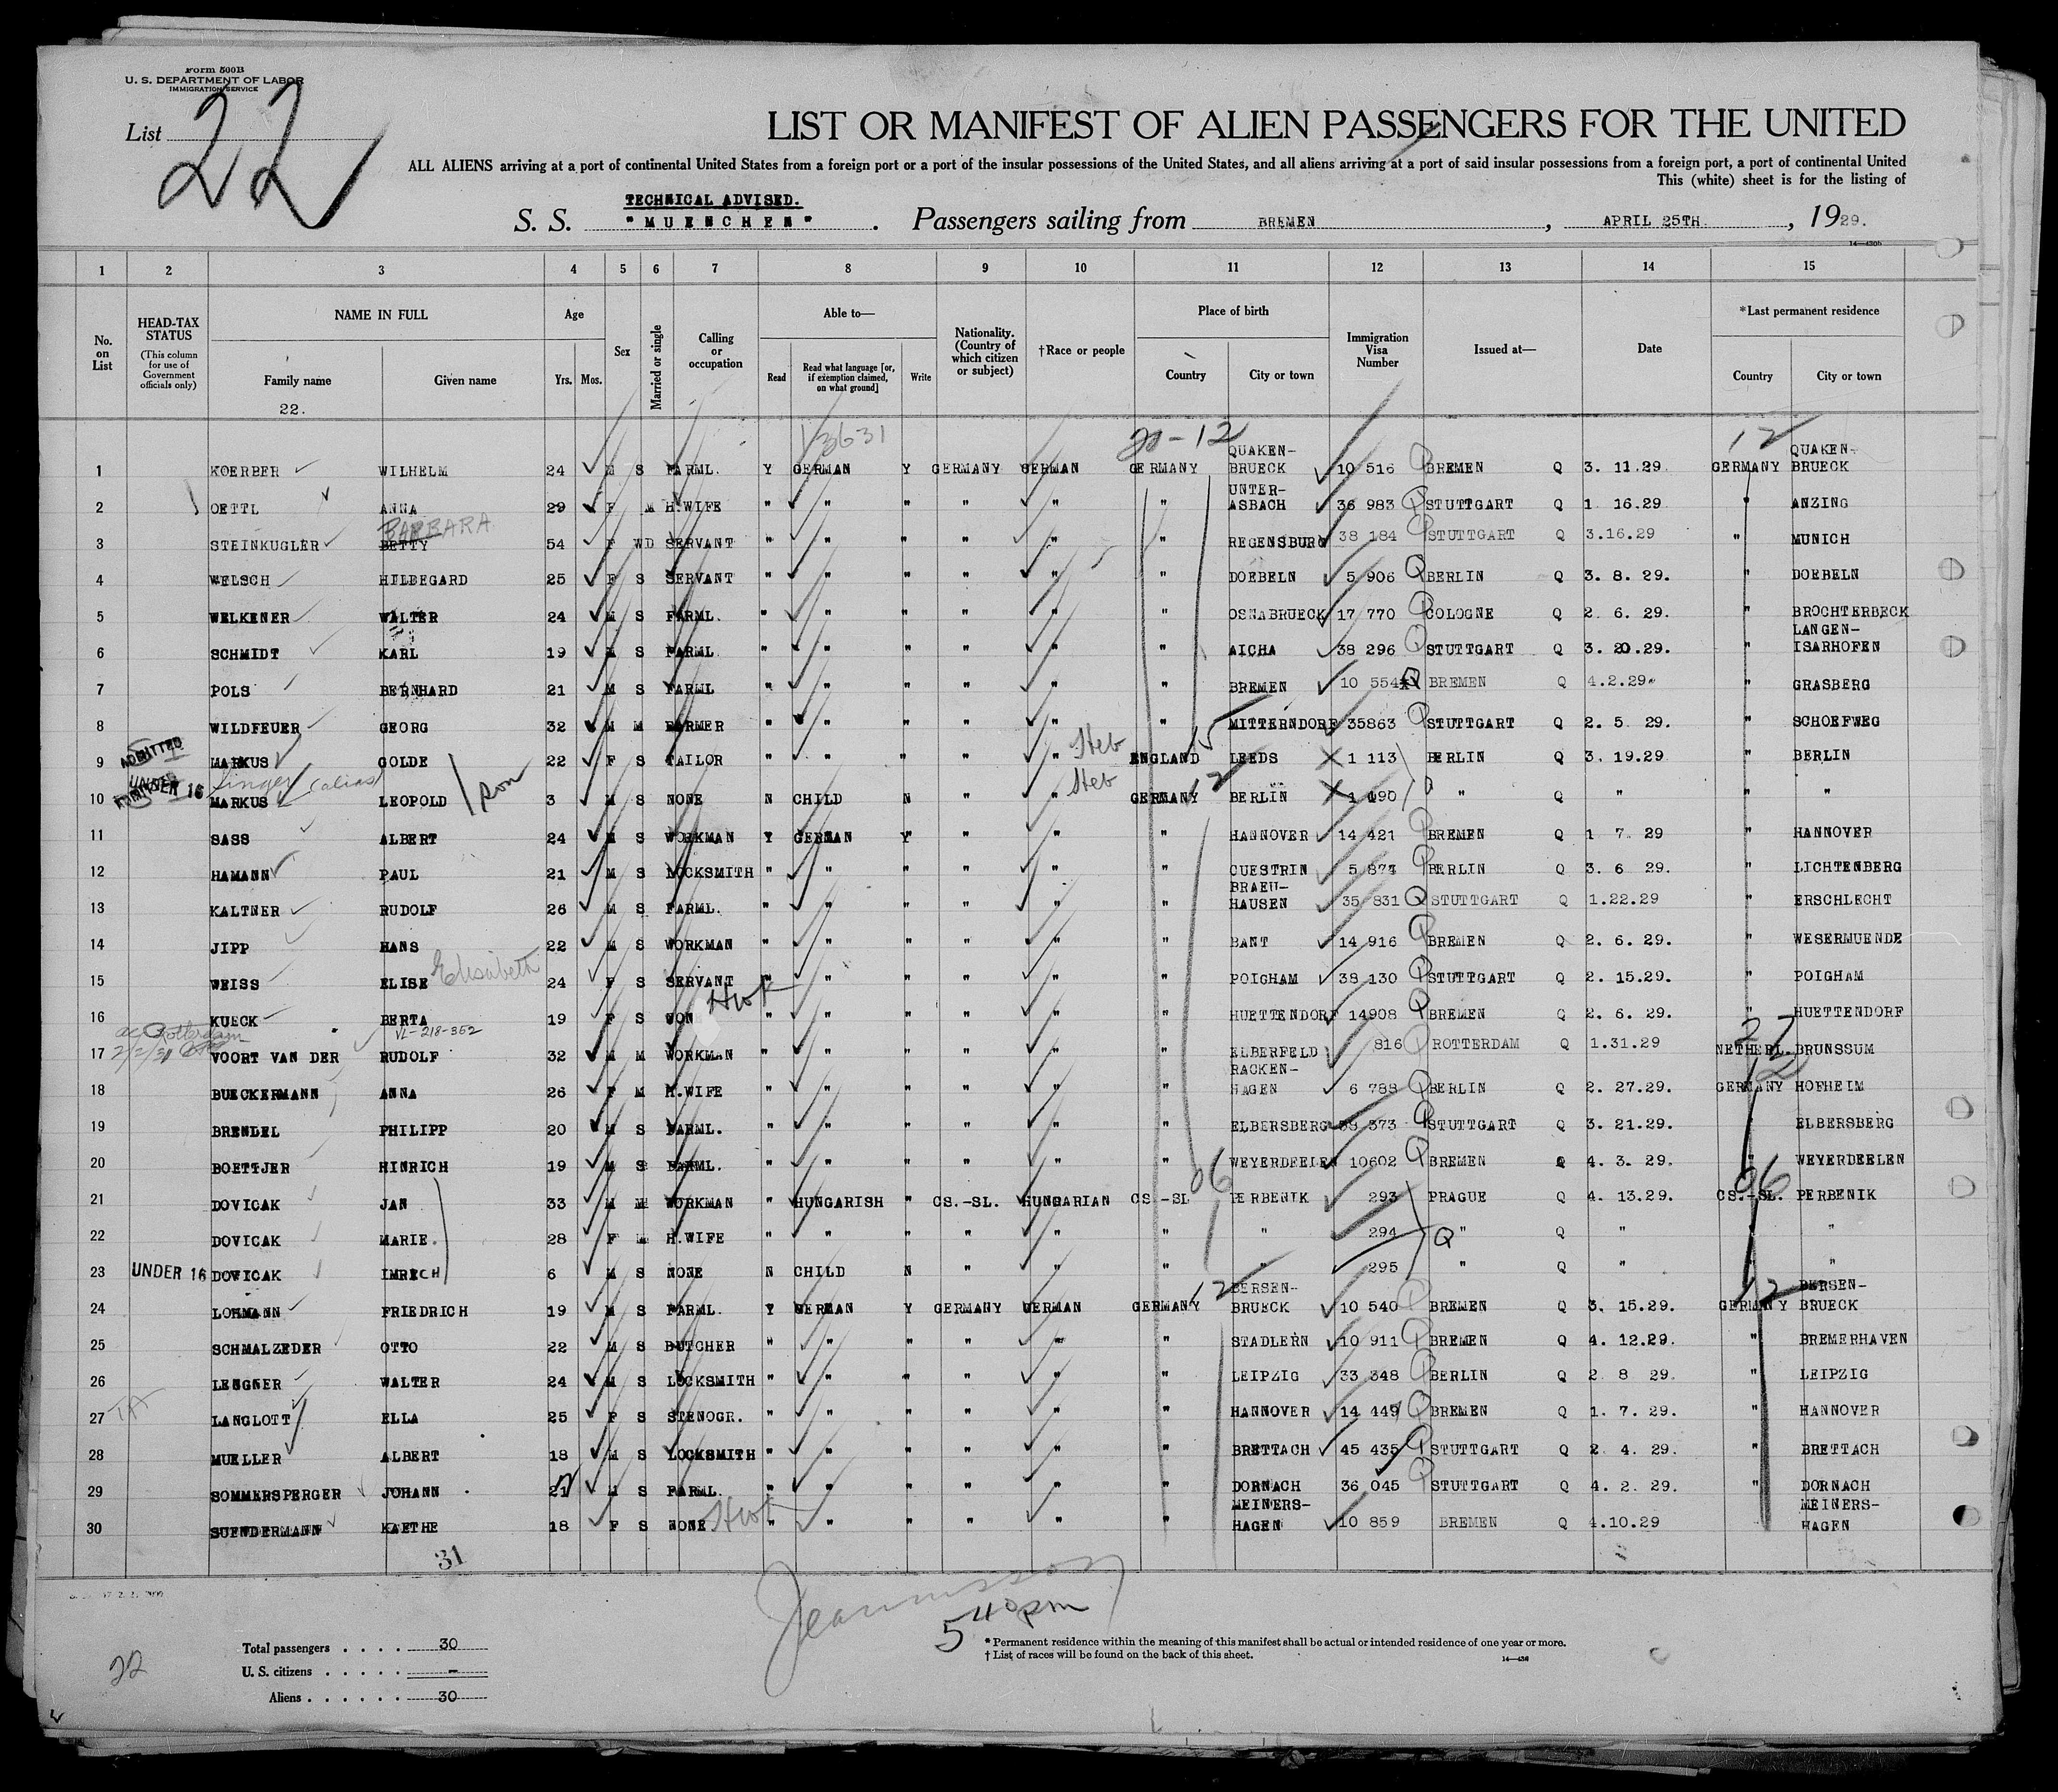 Form 500B
U. S. DEPARTMENT OF LABOR
IMMIGRATION SERVICE
List 22
LIST OR MANIFEST OF ALIEN PASSENGERS FOR THE UNITED
ALL ALIENS arriving at a port of continental United States from a foreign port or a port of the insular possessions of the United States, and all aliens arriving at a port of said insular possessions from a foreign port, a port of continental United
This (white) sheet is for the listing of
TECHNICAL ADVISED.
S. S. "MUENCHEN". Passengers sailing from BREMEN, APRIL 25TH., 1929.
1 2 3 4 5 6 7 8 9 10 11 12 13 14 15
No. on List HEAD-TAX STATUS (This column for use of Government officials only) NAME IN FULL Family name Given name Age Yrs. Mos. Sex Married or single Calling or occupation Able to— Read Read what language [or, if exemption claimed, on what ground] Write Nationality. (Country of which citizen or subject) †Race or people Place of birth Country City or town Immigration Visa Number Issued at— Date *Last permanent residence Country City or town
22.
13631 20-12 12
1 KOERBER WILHELM 24 M S FARML. Y GERMAN Y GERMANY GERMAN GERMANY QUAKEN-BRUECK 10 516 BREMEN Q 3. 11.29. GERMANY QUAKEN-BRUECK
2 OETTL ANNA 29 F M H.WIFE " " " " " " UNTER-ASBACH 36 983 Q STUTTGART Q 1 16.29 " ANZING
3 STEINKUGLER BETTY BARBARA 54 F WD SERVANT " " " " " " REGENSBURG 38 184 STUTTGART Q 3.16.29 " MUNICH
4 WELSCH HILDEGARD 25 F S SERVANT " " " " " " DOEBELN 5 906 Q BERLIN Q 3. 8. 29. " DOEBELN
5 WELKENER WALTER 24 M S FARML. " " " " " " OSNABRUECK 17 770 COLOGNE Q 2. 6. 29. " BROCHTERBECK
6 SCHMIDT KARL 19 M S FARML. " " " " " " AICHA 38 296 STUTTGART Q 3. 20.29. " LANGEN-ISARHOFEN
7 POLS BERNHARD 21 M S FARML " " " " " " BREMEN 10 554 Q BREMEN Q 4.2.29. " GRASBERG
8 WILDFEUER GEORG 32 M M FARMER " " " " " " MITTERNDORF 35863 STUTTGART Q 2. 5 29. " SCHOEFWEG
ADMITTED
9 MARKUS GOLDE 22 F S TAILOR " " " " " Heb ENGLAND 15 LEEDS 1 113 BERLIN Q 3. 19.29 " BERLIN
ADMITTED UNDER 16 Singer (alias)
10 MARKUS LEOPOLD son 3 M S NONE N CHILD N " " Heb GERMANY 12 BERLIN 1 090 " Q " " "
11 SASS ALBERT 24 M S WORKMAN Y GERMAN Y " " " HANNOVER 14 421 BREMEN Q 1 7. 29 " HANNOVER
12 HAMANN PAUL 21 M S LOCKSMITH " " " " " " CUESTRIN 5 874 BERLIN Q 3. 6 29. " LICHTENBERG
13 KALTNER RUDOLF 26 M S FARML. " " " " " " BRAEU-HAUSEN 35 831 Q STUTTGART Q 1.22.29 " ERSCHLECHT
14 JIPP HANS 22 M S WORKMAN " " " " " " BANT 14 916 BREMEN Q 2. 6. 29. " WESERMUENDE
15 WEISS ELISE Elisabeth 24 F S SERVANT " " " " " " POIGHAM 38 130 STUTTGART Q 2. 15.29. " POIGHAM
16 KUECK BERTA 19 F S NON Hwk " " " " " " HUETTENDORF 14908 BREMEN Q 2. 6. 29. " HUETTENDORF
Rotterdam VL-218-352 27
17 VOORT VAN DER RUDOLF 32 M M WORKMAN " " " " " " ELBERFELD 816 ROTTERDAM Q 1.31.29 NETHERL. BRUNSSUM
12
18 BUECKERMANN ANNA 26 F M H.WIFE " " " " " " RACKEN-HAGEN 6 788 BERLIN Q 2. 27.29. GERMANY HOFHEIM
19 BRENDEL PHILIPP 20 M S FARML. " " " " " " ELBERSBERG 38 373 STUTTGART Q 3. 21.29. " ELBERSBERG
20 BOETTJER HINRICH 19 M S FARML. " " " " " " WEYERDEELEN 10602 BREMEN Q 4. 3. 29. " WEYERDEELEN
06 06
21 DOVICAK JAN 33 M M WORKMAN " HUNGARISH " CS.-SL. HUNGARIAN CS.-SL PERBENIK 293 PRAGUE Q 4. 13.29. CS.-SL. PERBENIK
22 DOVICAK MARIE. 28 F M H.WIFE " " " " " " " 294 Q " Q " " "
23 UNDER 16 DOVICAK IMRECH 6 M S NONE N CHILD N " " " " 295 " Q " " "
12 12
24 LOHMANN FRIEDRICH 19 M S FARML. Y GERMAN Y GERMANY GERMAN GERMANY BERSEN-BRUECK 10 540 BREMEN Q 3. 15.29. GERMANY BERSEN-BRUECK
25 SCHMALZEDER OTTO 22 M S BUTCHER " " " " " " STADLERN 10 911 BREMEN Q 4. 12.29. " BREMERHAVEN
26 LENGNER WALTER 24 M S LOCKSMITH " " " " " " LEIPZIG 33 348 BERLIN Q 2 8 29. " LEIPZIG
27 LANGLOTT ELLA 25 F S STENOGR. " " " " " " HANNOVER 14 449 BREMEN Q 1. 7. 29. " HANNOVER
28 MUELLER ALBERT 18 M S LOCKSMITH " " " " " " BRETTACH 45 435 STUTTGART Q 2 4. 29. " BRETTACH
29 SOMMERSPERGER JOHANN 21 M S FARML. " " " " " " DORNACH 36 045 STUTTGART Q 4. 2. 29. " DORNACH
30 SUENDERMANN KAETHE 18 F S NONE Hwk " " " " " " MEINERS-HAGEN 10 859 BREMEN Q 4.10.29 MEINERS-HAGEN
31
5 40 pm
Total passengers . . . . 30
U. S. citizens . . . . . -
Aliens . . . . . . 30
22
* Permanent residence within the meaning of this manifest shall be actual or intended residence of one year or more.
† List of races will be found on the back of this sheet.